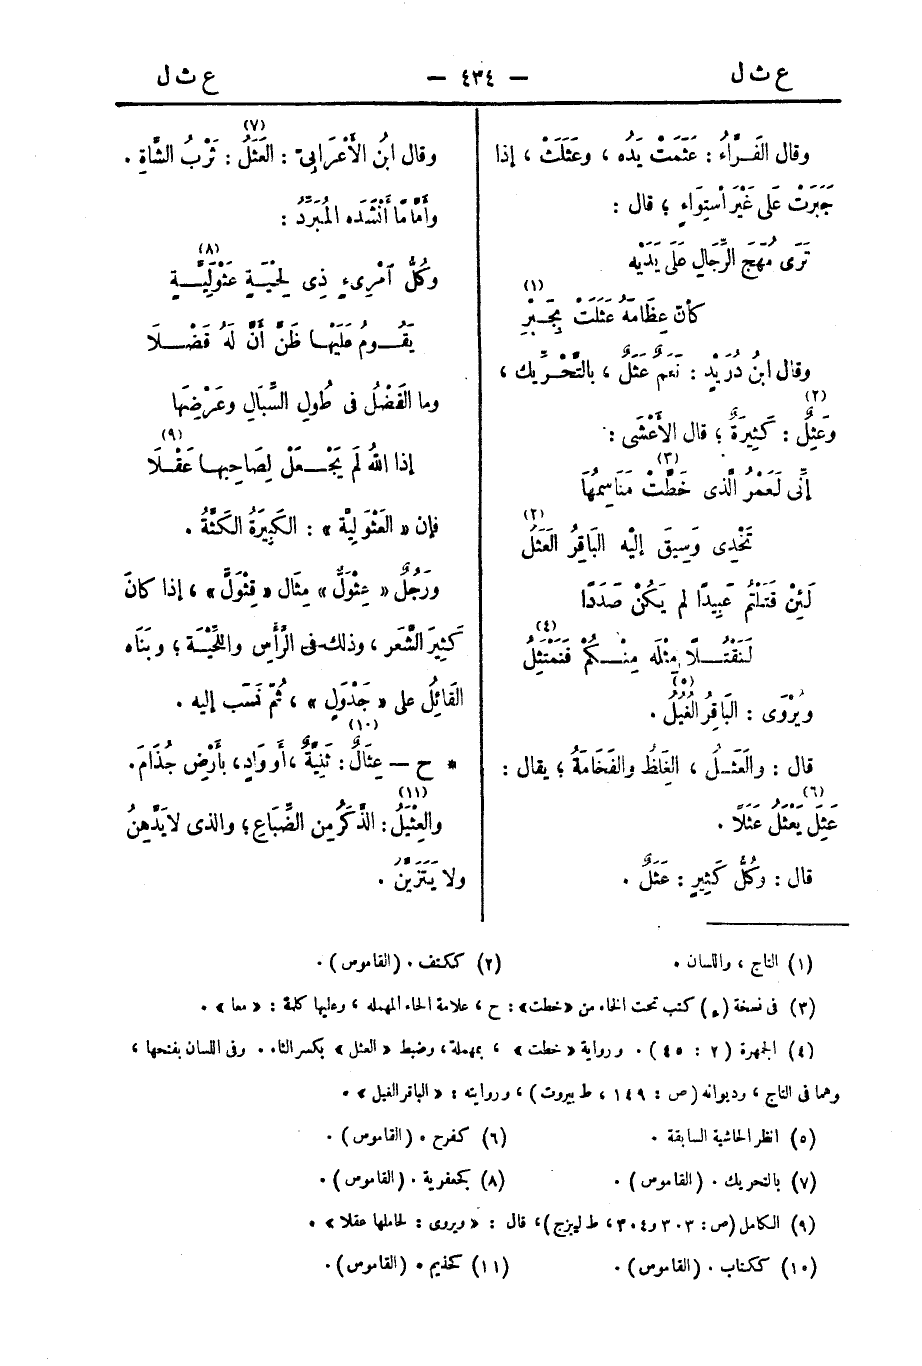 ع ث ل — ٤٣٤ — ع ث ل
وقال الفَرَّاءُ : عَثَمَتْ يَدُه ، وعَثَلَتْ ، إذا
جَبَرَتْ عَلَى غَيْرِ اسْتِوَاءٍ ؛ قال :
تَرَى مُهَجَ الرِّجَالِ عَلَى يَدَيْهِ
كأنّ عِظَامَهُ عَثَلَتْ بِجَبْرِ (١)
وقال ابنُ دُرَيْدٍ : نَعَمٌ عَثَلٌ ، بالتَّحْرِيك ،
وعَثِلٌ (٢) : كَثِيرَةٌ ؛ قال الأَعْشَى :
إنِّى لَعَمْرُ الَّذى خَطَّتْ (٣) مَنَاسِمُهَا
تَخْدِى وَسِيقَ إليْهِ البَاقِرُ العَثَلُ (٢)
لَئِنْ قَتَلْتُم عَمِيدًا لم يَكُنْ صَدَدًا
لَنَقْتُلًا مِثْلَه مِنْكُمْ فَنَمْتَثِلُ (٤)
ويُرْوَى : البَاقِرُ الغُيُلُ (٥) .
قال : والعَثَلُ ، الغِلَظُ والفَخَامَةُ ؛ يقال :
عَثِلَ (٦) يَعْثَلُ عَثَلًا .
قال : وكُلُّ كَثِيرٍ : عَثَلٌ .
وقال ابنُ الأَعْرَابِىّ : العَثَلُ (٧) : ثَرْبُ الشَّاةِ .
وأَمَّا مَا أَنْشَدَه المُبَرِّدُ :
وكُلُّ امْرِىءٍ ذِى لِحْيَةٍ عَثْوَلِيَّةٍ (٨)
يَقُومُ عَلَيْهَا ظَنَّ أَنَّ لَهُ فَضْلَا
وما الفَضْلُ فى طُولِ السِّبَالِ وعَرْضِهَا
إذا اللهُ لَم يَجْعَلْ لِصَاحِبِهَا عَقْلَا (٩)
فإن « العَثْوَلِيَّة » : الكَبِيرَةُ الكَثَّةُ .
ورَجُلٌ « عِثْوَلٌّ » مِثَال « قِثْوَلّ » ، إذا كانَ
كَثِيرَ الشَّعَر ، وذلك فى الرَّأْسِ واللِّحْيَة ؛ وبَنَاه
القَائِلُ على « جَدْوَلٍ » ، ثُمّ نَسَب إليه .
* ح — عِثَالٌ (١٠) : ثَنِيَّةٌ ، أو وَادٍ ، بأَرْضِ جُذَامَ .
والعِثْيَلُ (١١) : الذَّكَرُ مِن الضِّبَاعِ ؛ والذى لا يَدَّهِنُ
ولا يَتَزَيَّنُ .
(١) التاج ، واللسان . (٢) ككتف . (القاموس) .
(٣) فى نسخة (م) كتب تحت الخاء من «خطت» : ح ، علامة الحاء المهمله ، وعليها كلمة : « معا » .
(٤) الجمهرة (٢ : ٤٥) . ورواية « خطت » ، بمهملة ، وضبط « العثل » بكسر الثاء . وفى اللسان بفتحها ،
وهما فى التاج ، وديوانه (ص : ١٤٩ ، ط بيروت) ، وروايته : « الباقر الغيل » .
(٥) انظر الحاشية السابقة . (٦) كفرح . (القاموس) .
(٧) بالتحريك . (القاموس) . (٨) كجعفرية . (القاموس) .
(٩) الكامل (ص : ٣٠٣ و٣٠٤ ، ط ليبزج) ، قال : « ويروى : لحاملها عقلا » .
(١٠) ككتاب . (القاموس) . (١١) كحذيم . (القاموس) .